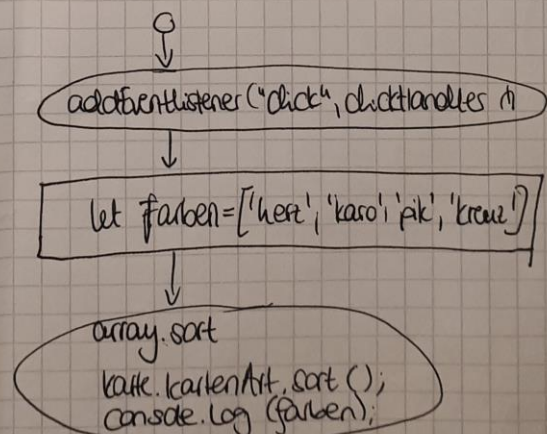 addEventListener("click", clickHandler )
let farben=['herz', 'karo', 'pik', 'kreuz']
array.sort
karte.kartenArt.sort();
console.log (farben);